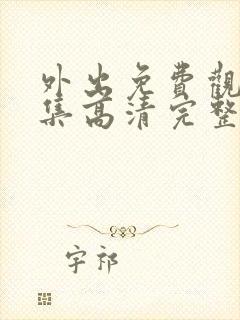 外出免費觀
集高清完整
宇祁